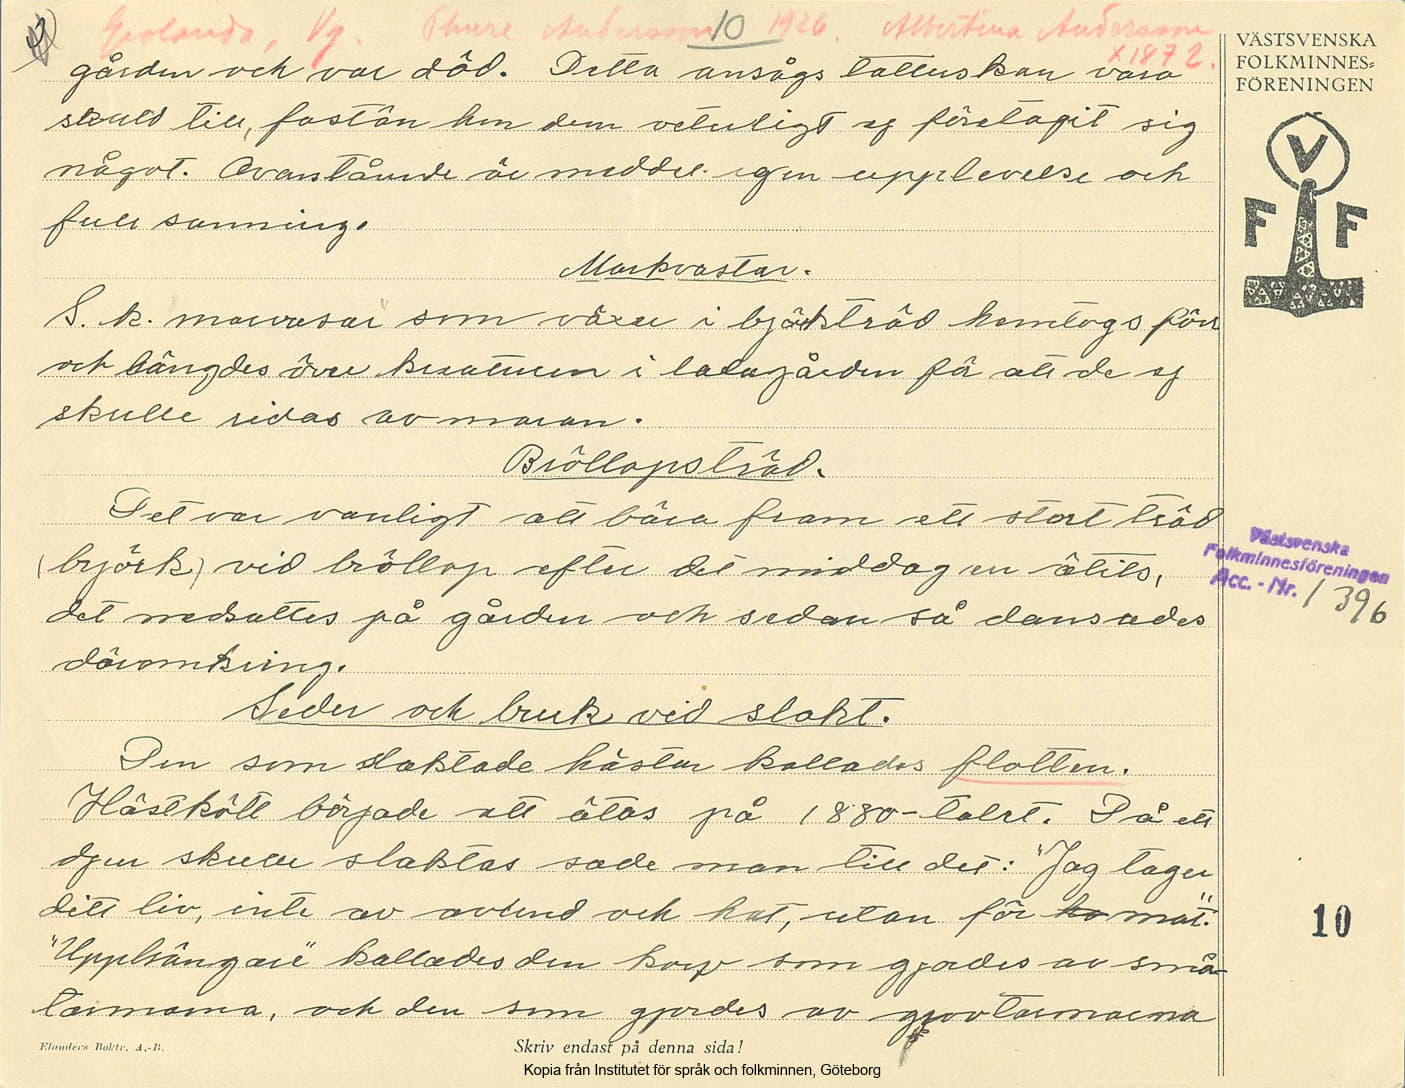 Grolanda, Vg. Thure Andersson 10 1926. Albertina Andersson
x 1872.
gården och var död. Detta ansågs tatterskan vara
skuld till, fastän hon dem veterligt ej företagit sig
något. Ovanstående är meddel. egen upplevelse och
full sanning.
Markvastar.
S. k. marvasar som växer i björkträd hemtogs förr
och hängdes över kreaturen i ladugården för att de ej
skulle ridas av maran.
Bröllopsträd.
Det var vanligt att bära fram ett stort träd
(björk) vid bröllop efter det middagen ätits,
det nedsattes på gården och sedan så dansades
däromkring.
Seder och bruk vid slakt.
Den som slaktade hästar kallades flotten.
Hästkött började att ätas på 1880-talet. Då ett
djur skulle slaktas sade man till det: "Jag tager
ditt liv, inte av avund och hat, utan för mat."
"Upphängare" kallades den korv som gjordes av små-
tarmarna, och den som gjordes av grovtarmarna
VÄSTSVENSKA
FOLKMINNES=
FÖRENINGEN
V
F F
Västsvenska
Folkminnesföreningen
Acc. - Nr. 1396
10
Elanders Boktr. A.-B.
Skriv endast på denna sida!
Kopia från Institutet för språk och folkminnen, Göteborg